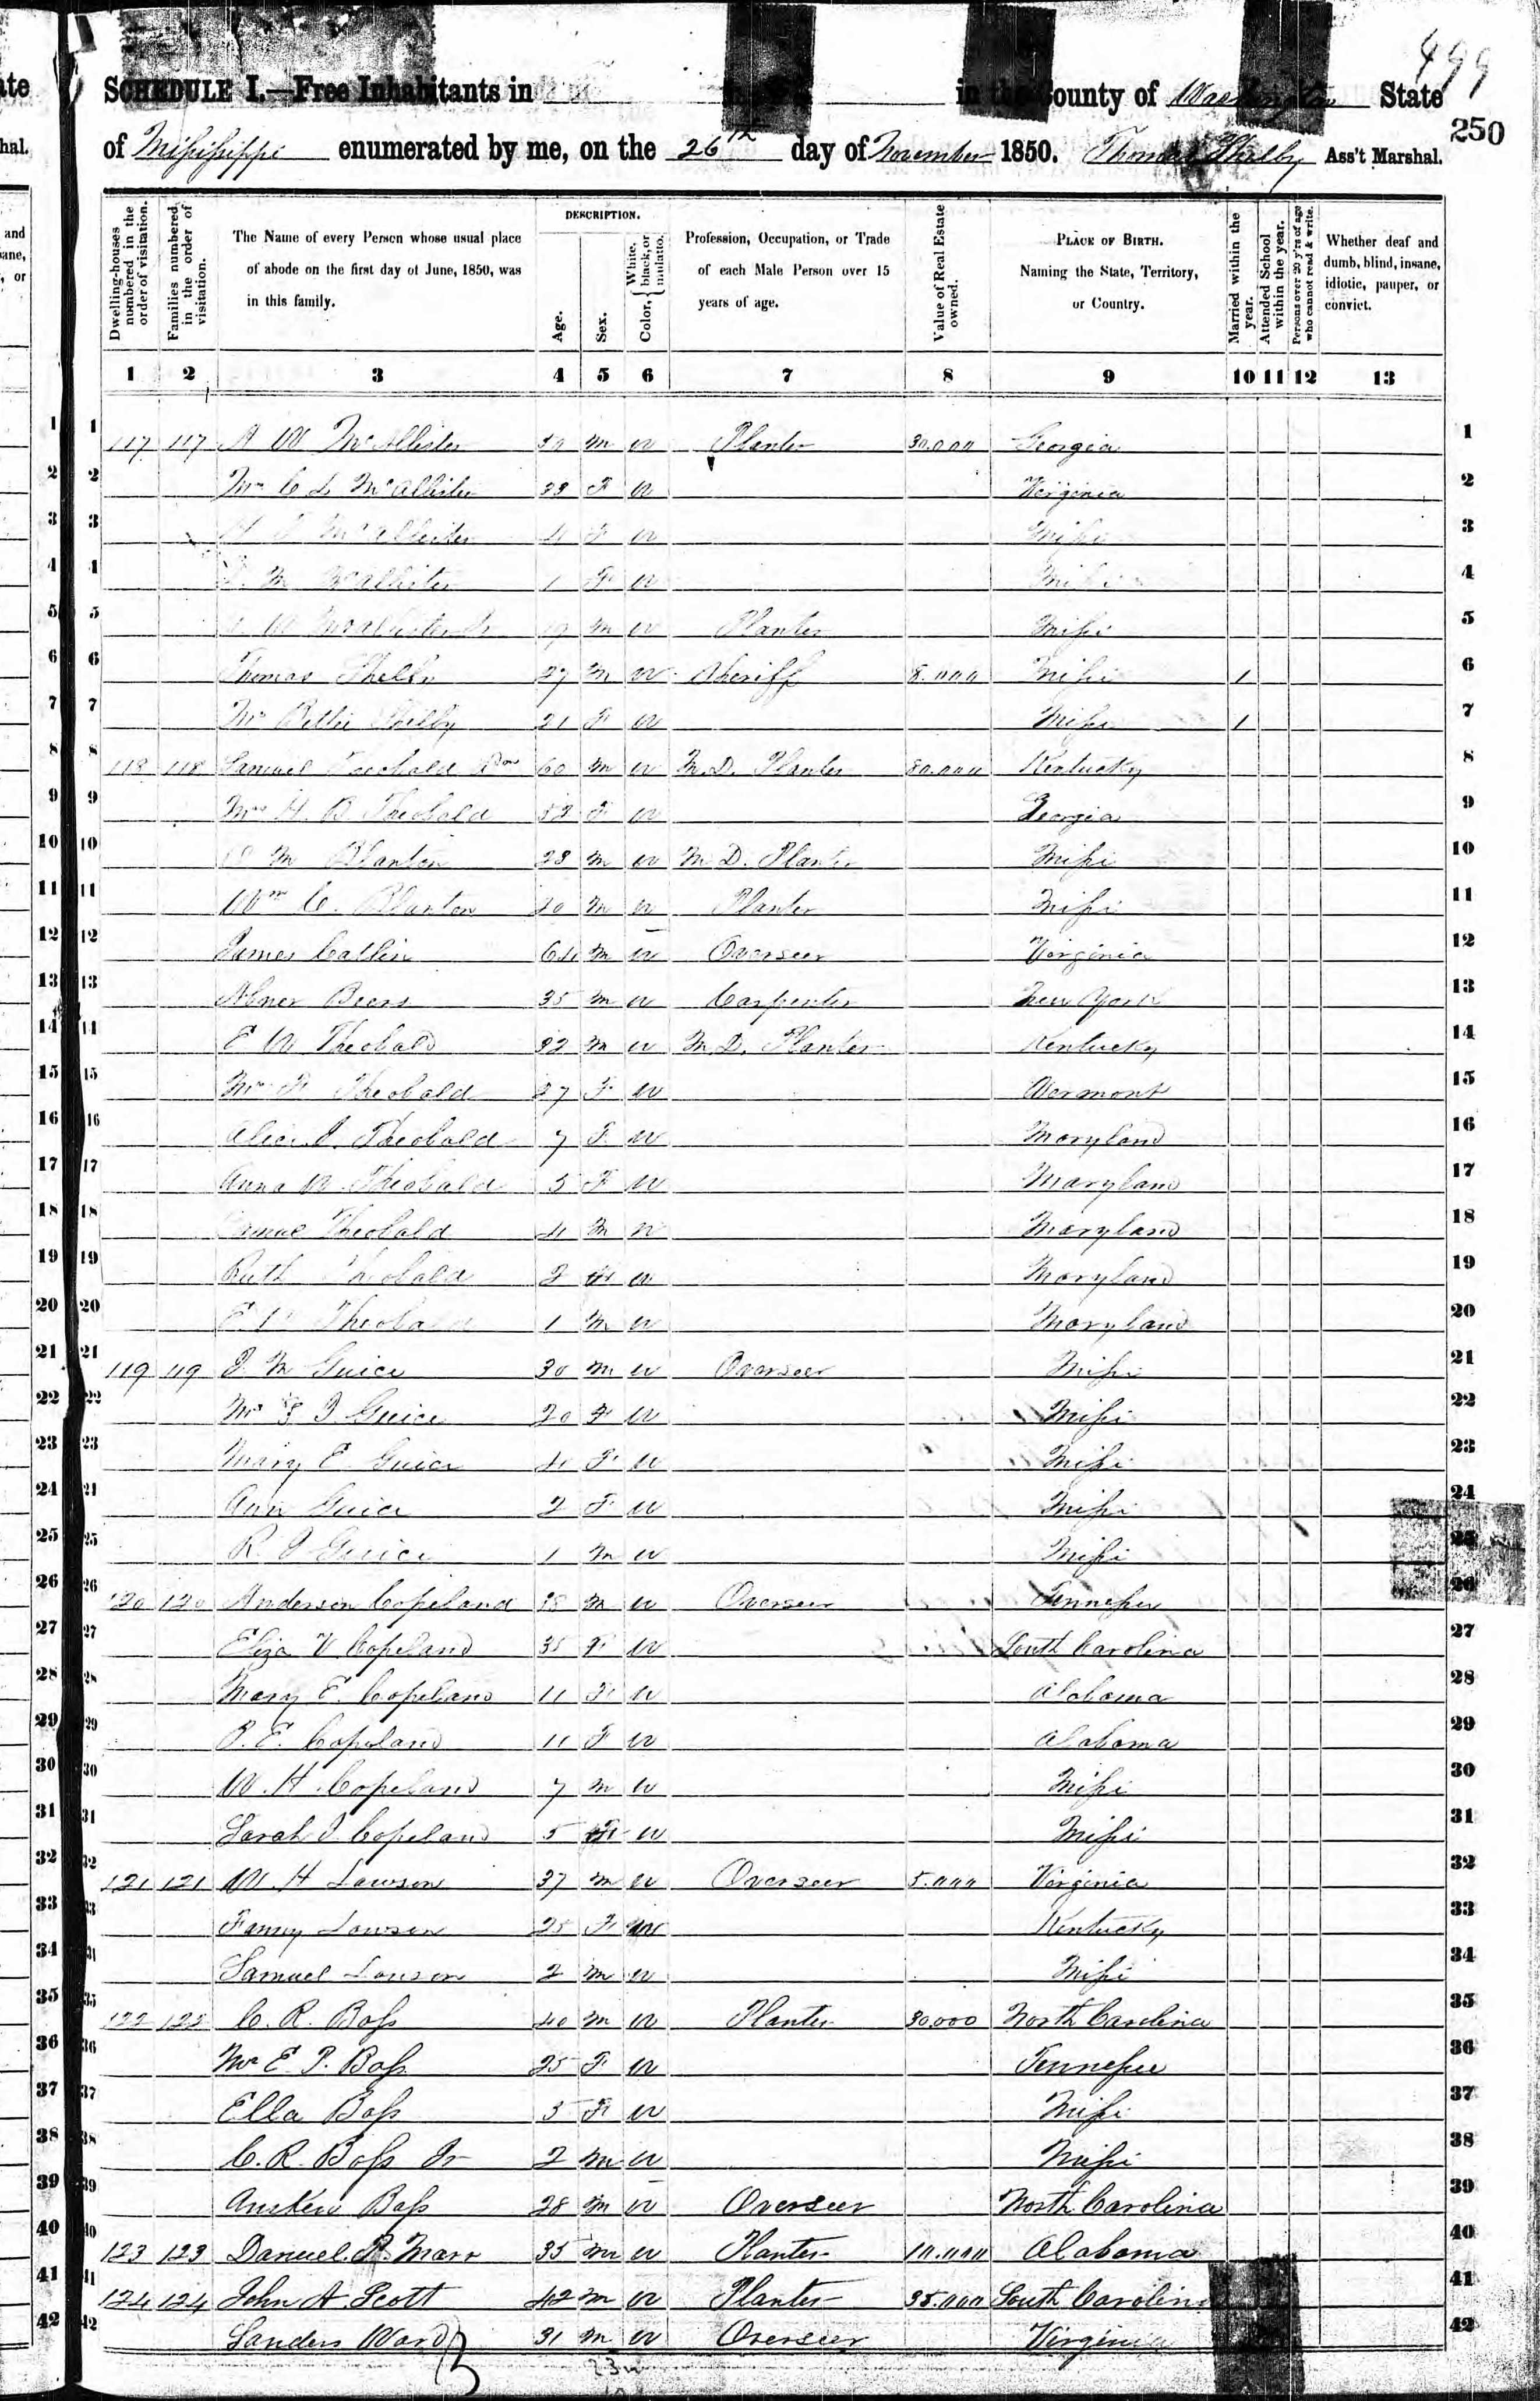 499
SCHEDULE I.—Free Inhabitants in in the County of Washington State
250
of Mississippi enumerated by me, on the 26th day of November 1850. Thomas Shelby Ass't Marshal.
Dwelling-houses numbered in the order of visitation.
Families numbered in the order of visitation.
The Name of every Person whose usual place of abode on the first day of June, 1850, was in this family.
DESCRIPTION.
Age.
Sex.
Color, { White, black, or mulatto.
Profession, Occupation, or Trade of each Male Person over 15 years of age.
Value of Real Estate owned.
PLACE OF BIRTH. Naming the State, Territory, or Country.
Married within the year.
Attended School within the year.
Persons over 20 y'rs of age who cannot read & write.
Whether deaf and dumb, blind, insane, idiotic, pauper, or convict.
1 2 3 4 5 6 7 8 9 10 11 12 13
1 117 117 A W McAllister M W Planter 30.000 Georgia 1
2 C L McAllister F W Virginia 2
3 McAllister 4 F W Missi 3
4 M McAllister 1 F W Missi 4
5 W McAllister Jr 19 M W Planter Missi 5
6 Thomas Shelby 27 M W Sheriff 8.000 Missi 1 6
7 Mrs Bettie Shelby 21 F W Missi 1 7
8 118 118 Samuel Theobald 60 M W M.D. Planter 80.000 Kentucky 8
9 Mrs H. B. Theobald 52 F W Georgia 9
10 O M Blanton 28 M W M D. Planter Missi 10
11 Wm C. Blanton 20 M W Planter Missi 11
12 James Catlin 64 M W Overseer Virginia 12
13 Abner Beers 35 M W Carpenter New York 13
14 E W Theobald 32 M W M D. Planter Kentucky 14
15 Mrs Theobald 27 F W Vermont 15
16 Alice J. Theobald 7 F W Maryland 16
17 Anna W. Theobald 5 F W Maryland 17
18 Samuel Theobald 4 M W Maryland 18
19 Ruth Theobald 2 F W Maryland 19
20 E. W Theobald 1 M W Maryland 20
21 119 119 J. M Guice 30 M W Overseer Missi 21
22 Mrs J Guice 20 F W Missi 22
23 Mary E Guice 4 F W Missi 23
24 Ann Guice 2 F W Missi 24
25 R. J Guice 1 M W Missi 25
26 120 120 Anderson Copeland 38 M W Overseer Tennessee 26
27 Eliza V Copeland 35 F W South Carolina 27
28 Mary E. Copeland 11 F W Alabama 28
29 P. E. Copeland 11 F W Alabama 29
30 W. H. Copeland 7 M W Missi 30
31 Sarah J. Copeland 5 F W Missi 31
32 121 121 W. H Lawson 37 M W Overseer 5.000 Virginia 32
33 Fanny Lawson 25 F W Kentucky 33
34 Samuel Lawson 2 M W Missi 34
35 122 122 C. R. Bass 40 M W Planter 30.000 North Carolina 35
36 Mrs E. P. Bass 25 F W Tennessee 36
37 Ella Bass 5 F W Missi 37
38 C. R. Bass Jr 2 M W Missi 38
39 Bass 28 M W Overseer North Carolina 39
40 123 123 Daniel R. Marr 35 M W Planter 10.000 Alabama 40
41 124 124 John A Scott 42 M W Planter 35.000 South Carolina 41
42 Sanders Ward 31 M W Overseer Virginia 42